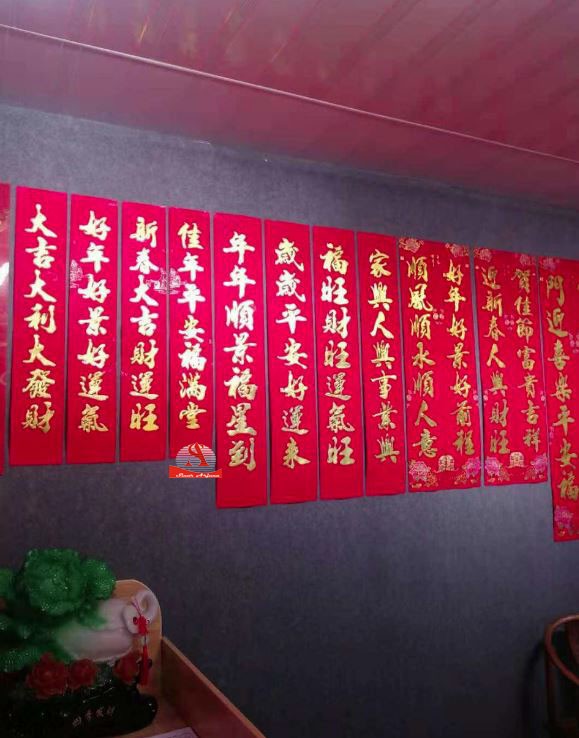 大吉大利大發財
好年好景好運氣
新春大吉財運旺
佳年平安福滿堂
年年順景福星到
歲歲平安好運來
福旺財旺運氣旺
家興人興事業興
好年好景好前程
順風順水順人意
賀佳節富貴吉祥
迎新春人興財旺
門迎喜樂平安福